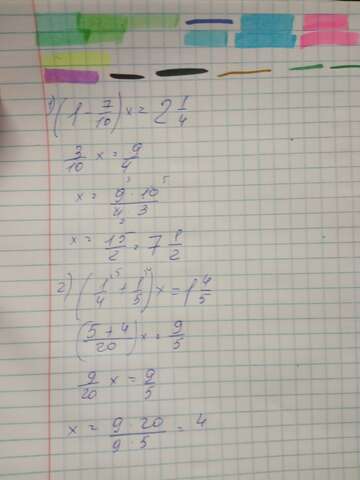 1) (1 - 7/10) x = 2 1/4
3/10 x = 9/4
x = 9 · 10 / 4 · 3
x = 15/2 = 7 1/2
2) (1/4 + 1/5) x = 1 4/5
(5 + 4 / 20) x = 9/5
9/20 x = 9/5
x = 9 · 20 / 9 · 5 = 4